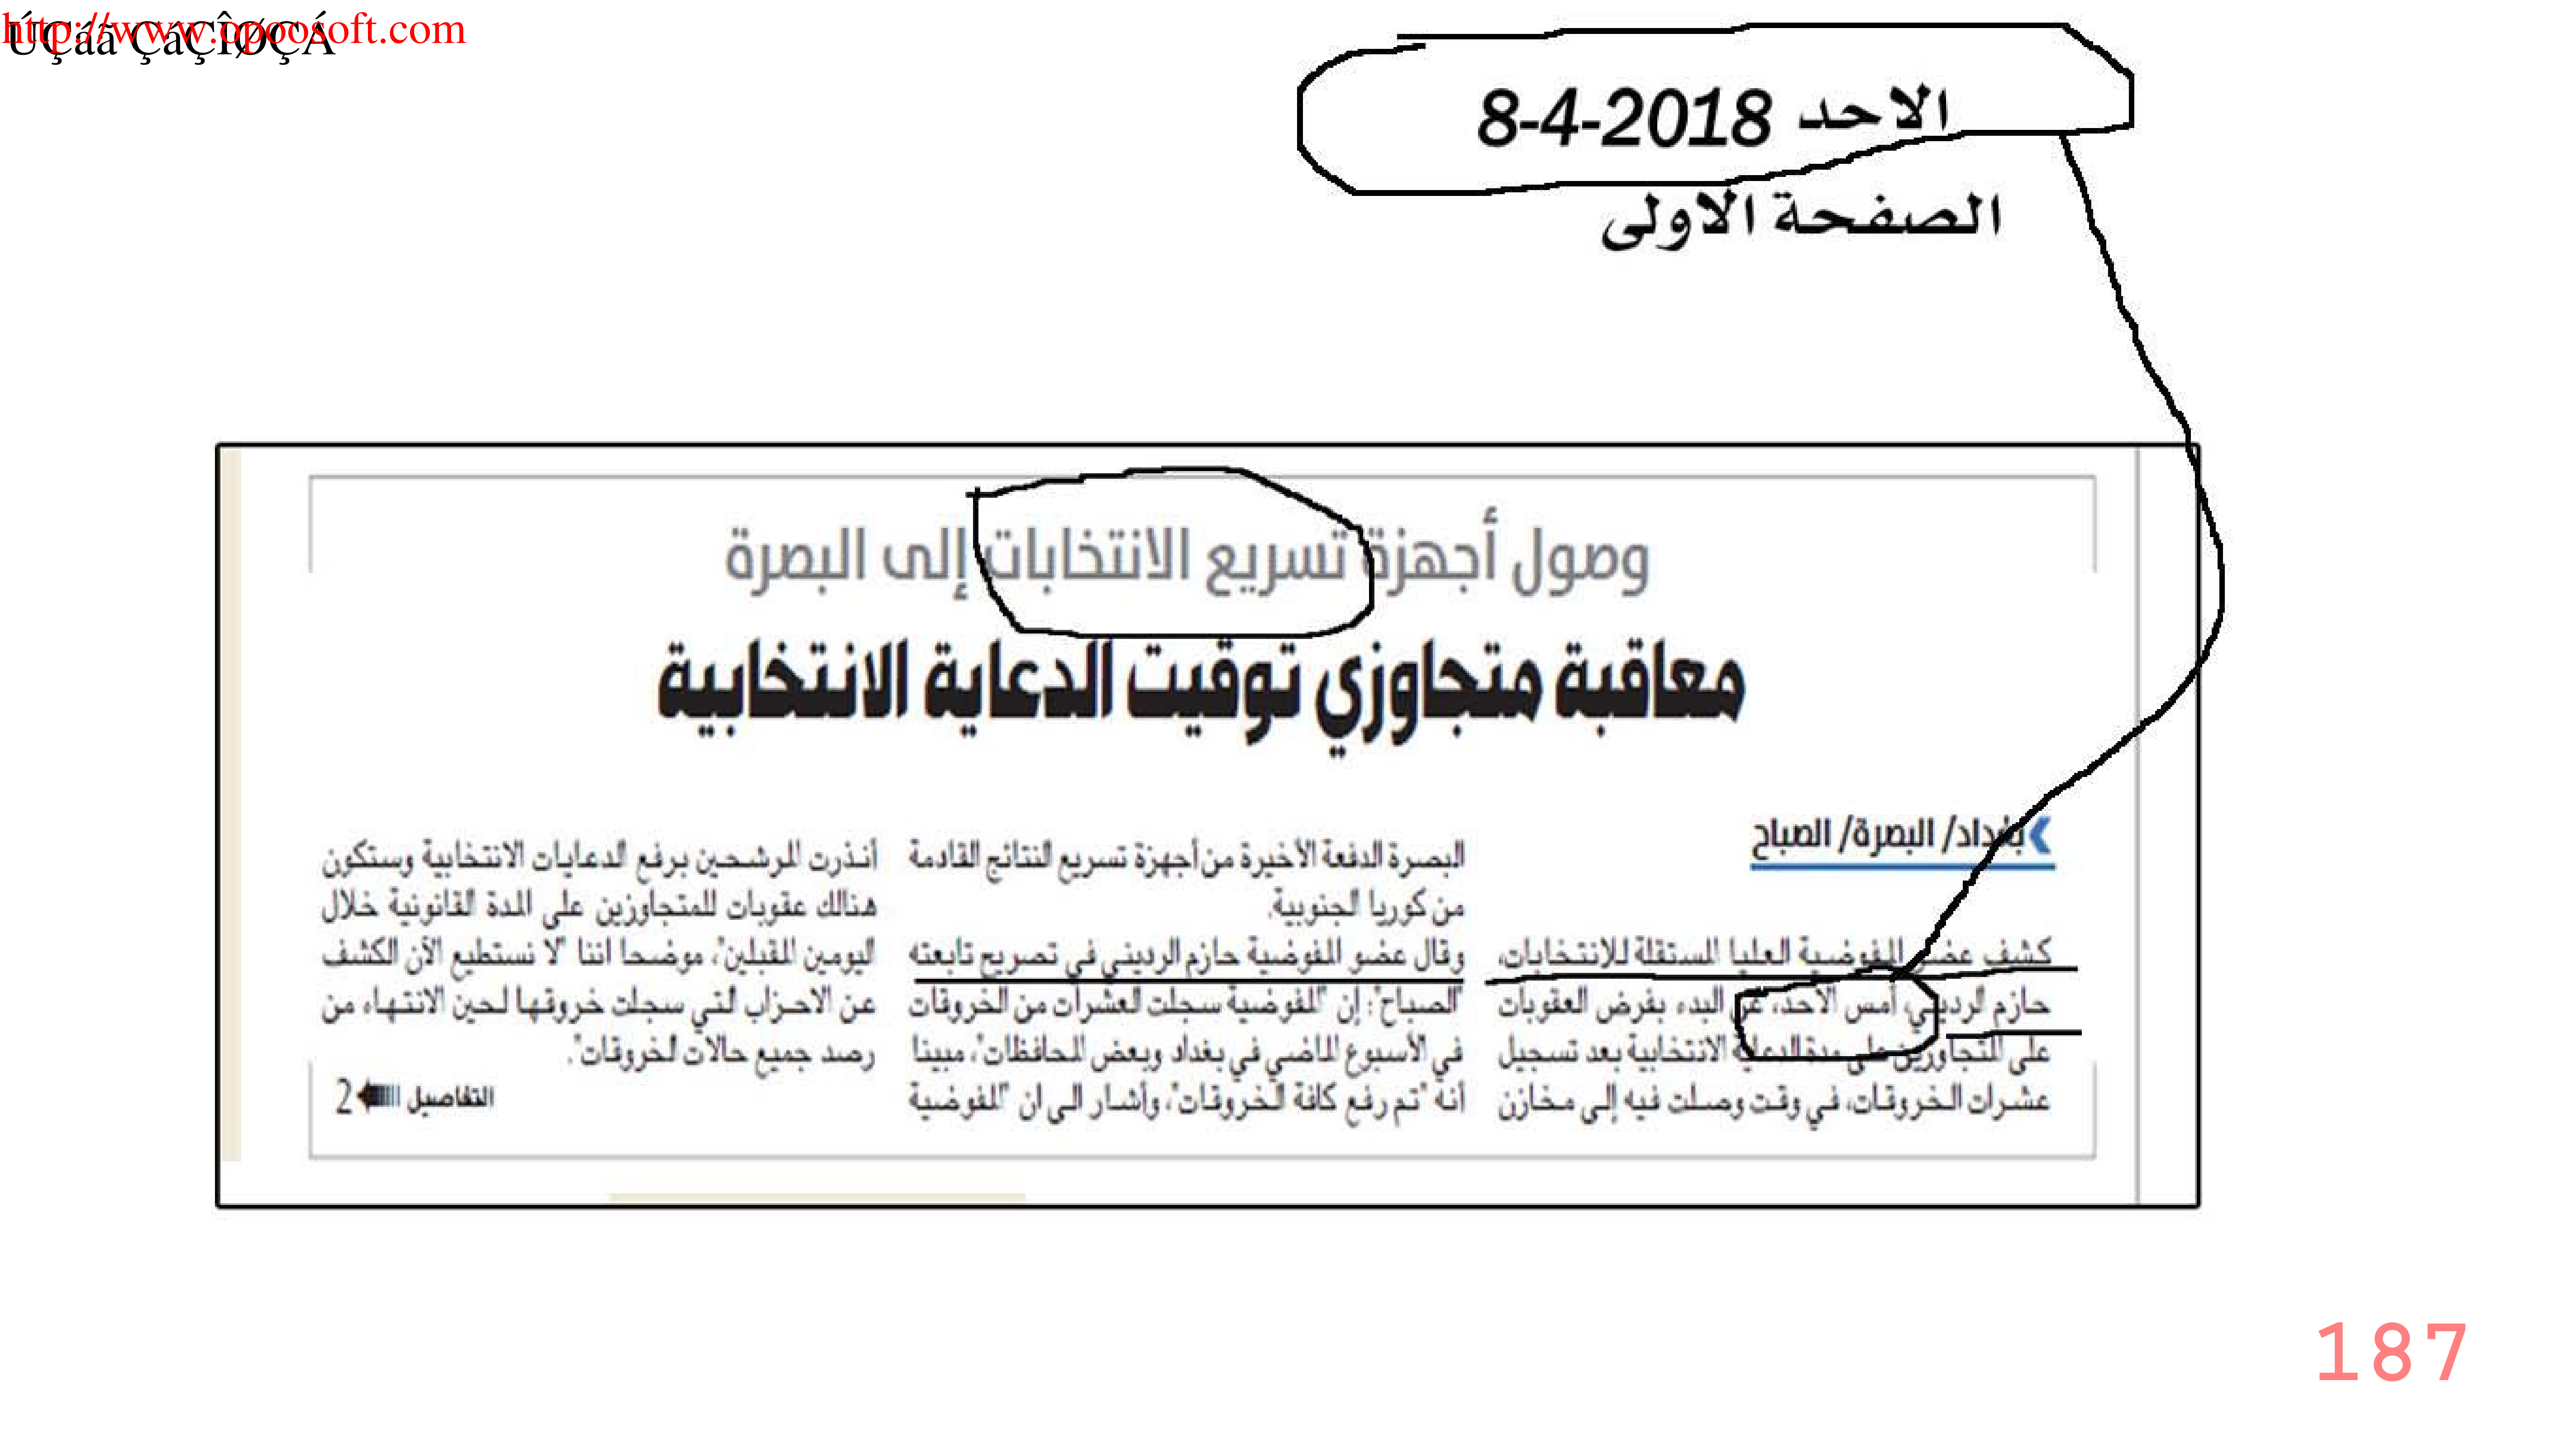 http://www.opoosoft.com
ÚÇáã ÇáÇÎØÇÁ
الاحد 2018-4-8
الصفحة الاولى
وصول أجهزة تسريع الانتخابات إلى البصرة
معاقبة متجاوزي توقيت الدعاية الانتخابية
بغداد/ البصرة/ الصباح
كشف عضو المفوضية العليا المستقلة للانتخابات،
حازم الرديني، أمس الأحد، عن البدء بفرض العقوبات
على المتجاوزين على مدة الدعاية الانتخابية بعد تسجيل
عشرات الخروقات، في وقت وصلت فيه إلى مخازن
البصرة الدفعة الأخيرة من أجهزة تسريع النتائج القادمة
من كوريا الجنوبية.
وقال عضو المفوضية حازم الرديني في تصريح تابعته
"الصباح": إن "المفوضية سجلت العشرات من الخروقات
في الأسبوع الماضي في بغداد وبعض المحافظات"، مبينا
أنه "تم رفع كافة الخروقات"، وأشار الى ان "المفوضية
أنذرت المرشحين برفع الدعايات الانتخابية وستكون
هنالك عقوبات للمتجاوزين على المدة القانونية خلال
اليومين المقبلين"، موضحا اننا "لا نستطيع الآن الكشف
عن الاحزاب التي سجلت خروقها لحين الانتهاء من
رصد جميع حالات الخروقات".
التفاصيل 2
187